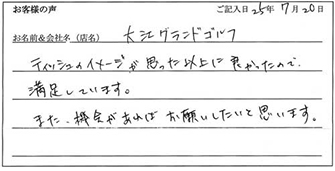 お客様の声 ご記入日 25年 7月 20日
お名前&会社名（店名） 大江グランドゴルフ
ティッシュのイメージが思った以上に良かったので、
満足しています。
また、機会があればお願いしたいと思います。